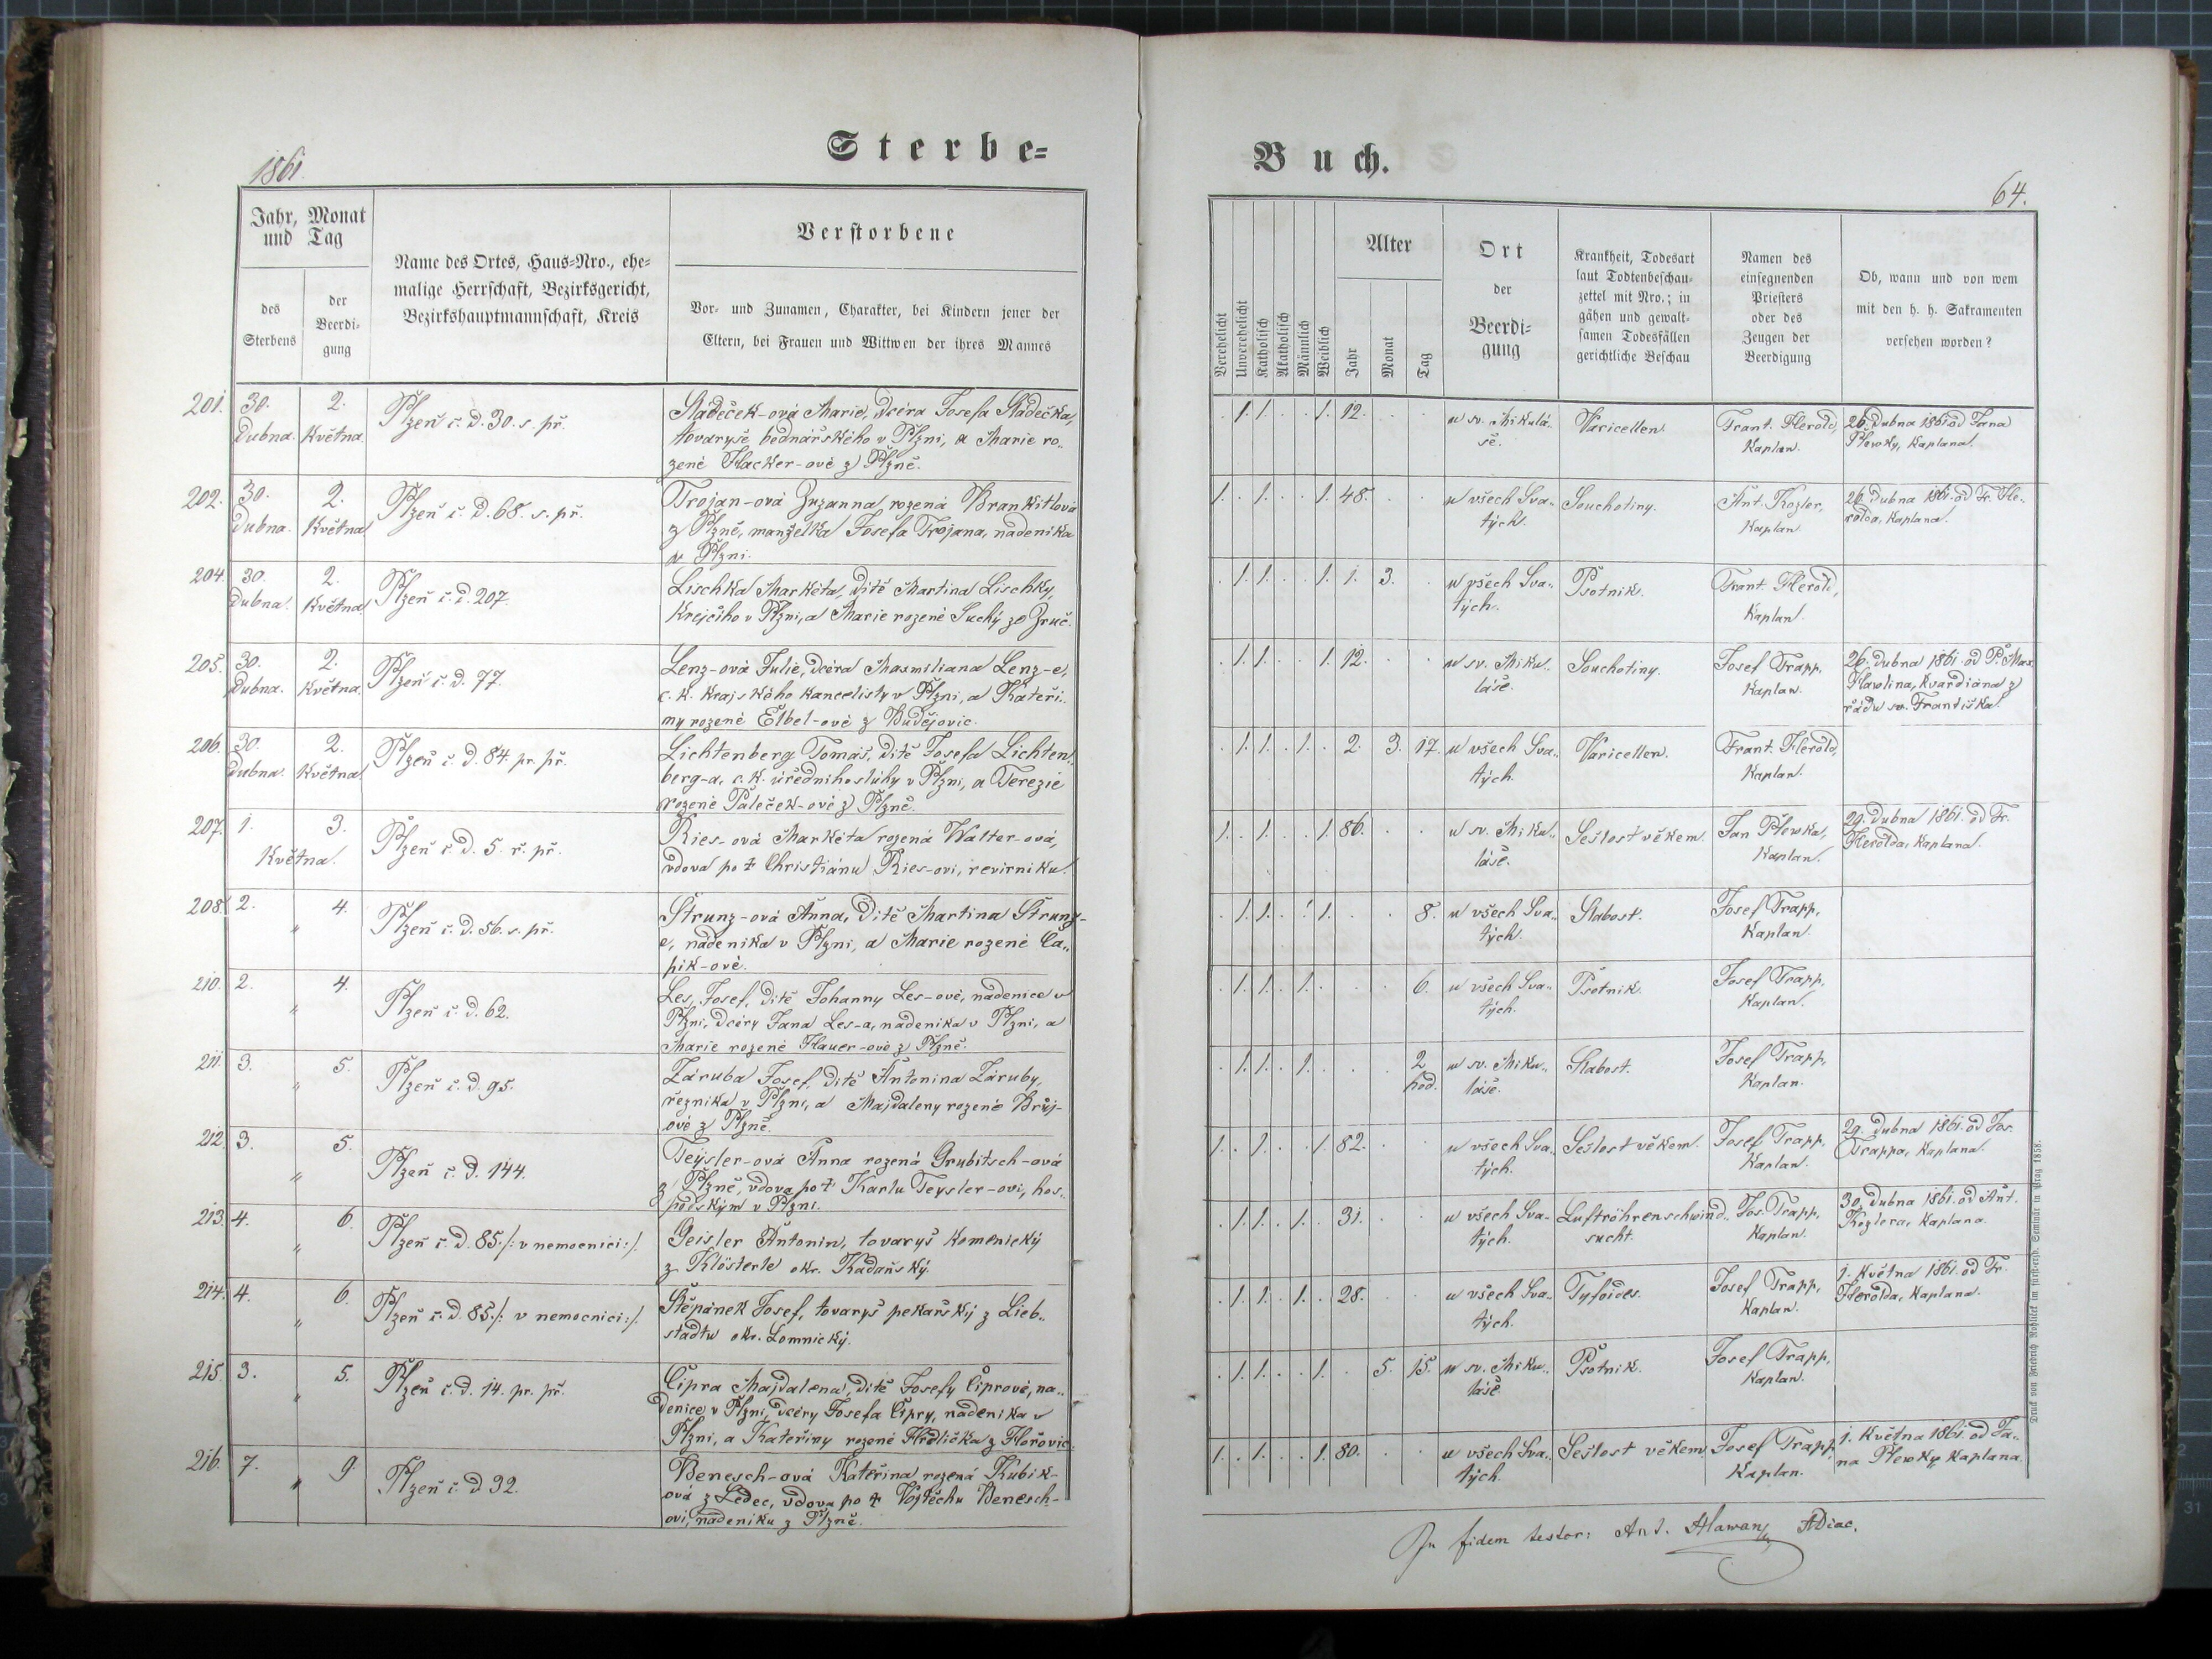 1861.
Sterbe-
Jahr, Monat
und Tag
des
Sterbens
der
Beerdi-
gung
Name des Ortes, Haus-Nro., ehe-
malige Herrschaft, Bezirksgericht,
Bezirkshauptmannschaft, Kreis
Verstorbene
Vor- und Zunamen, Charakter, bei Kindern jener der
Eltern, bei Frauen und Wittwen der ihres Mannes
201. 30. Dubna. 2. Května. Plzeň č. d. 30. s. př.
Sládeček-ová Marie, dcéra Josefa Sládečka,
tovaryše bednářského v Plzni, a Marie ro-
zené Hacker-ové z Plzně.
202. 30. Dubna. 2. Května Plzeň č. d. 68. s. př.
Trojan-ová Zuzanna, rozená Brankitlová
z Plzně, manželka Josefa Trojana, nádeníka
v Plzni.
204. 30. Dubna. 2. Května Plzeň č. d. 207.
Lischka Markéta, dítě Martina Lischky,
krejčího v Plzni, a Marie rozené Suchý ze Zruč.
205. 30. Dubna. 2. Května. Plzeň č. d. 77.
Lenz-ová Julie, dcéra Maxmiliana Lenz-e,
c. k. krajského kancelisty v Plzni, a Kateři-
ny rozené Elbel-ové z Budějovic.
206. 30. Dubna. 2. Května. Plzeň č. d. 84. pr. př.
Lichtenberg Tomáš, dítě Josefa Lichten-
berg-a, c. k. úředního sluhy v Plzni, a Terezie
rozené Paleček-ové z Plzně.
207. 1. 3. Května. Plzeň č. d. 5. ř. př.
Ries-ová Markéta rozená Walter-ová,
vdova po † Christiánu Ries-ovi, revírníku.
208. 2. " 4. Plzeň č. d. 56. s. př.
Strunz-ová Anna, dítě Martina Strunz-
e, nádeníka v Plzni, a Marie rozené Ča-
pik-ové.
210. 2. " 4. Plzeň č. d. 62.
Les, Josef, dítě Johanny Les-ové, nádenice v
Plzni, dcéry Jana Les-a, nádeníka v Plzni, a
Marie rozené Hauer-ové z Plzně.
211. 3. " 5. Plzeň č. d. 95.
Záruba Josef, dítě Antonína Záruby,
řezníka v Plzni, a Majdaleny rozené Brůj-
ové z Plzně.
212. 3. " 5. Plzeň č. d. 144.
Teysler-ová Anna rozená Grubitsch-ová
z Plzně, vdova po † Karlu Teysler-ovi, hos-
podským v Plzni.
213. 4. " 6. Plzeň č. d. 85. /: v nemocnici :/.
Geisler Antonín, tovaryš kamenický
z Klösterle okr. Kadaňský.
214. 4. " 6. Plzeň č. d. 85. /: v nemocnici :/.
Štěpánek Josef, tovaryš pekařský z Lieb-
stadtu okr. Lomnický.
215. 3. " 5. Plzeň č. d. 14. pr. př.
Cipra Majdalena, dítě Josefy Ciprové, ná-
denice v Plzni, dcéry Josefa Cipry, nádeníka v
Plzni, a Kateřiny rozené Hrdlička z Hořovic.
216. 7. " 9. Plzeň č. d. 32.
Benesch-ová Kateřina rozená Kubik-
ová z Ledec, vdova po † Vojtěchu Benesch-
ovi, nádeníku z Plzně.
Buch.
64.
Verehelicht
Unverehelicht
Katholisch
Akatholisch
Männlich
Weiblich
Alter
Jahr
Monat
Tag
Ort
der
Beerdi-
gung
Krankheit, Todesart
laut Todtenbeschau-
zettel mit Nro.; in
gähen und gewalt-
samen Todesfällen
gerichtliche Beschau
Namen des
einsegnenden
Priesters
oder des
Zeugen der
Beerdigung
Ob, wann und von wem
mit den h. h. Sakramenten
versehen worden?
. 1. 1. . . 1. 12. . . u sv. Mikulá- Varicellen. Frant. Herold, 26. Dubna 1861 od Jana
še. Kaplan. Plewky, Kaplana.
1. . 1. . . 1. 48. . . u všech Sva- Souchotiny. Ant. Kozler, 26. Dubna 1861. od Fr. He-
tých. Kaplan. rolda, Kaplana.
. 1. 1. . . 1. 1. 3. . u všech Sva- Psotník. Frant. Herold,
tých. Kaplan.
. 1. 1. . . 1. 12. . . u sv. Miku- Souchotiny. Josef Trapp, 26. Dubna 1861 od P. Max.
láše. Kaplan. Hawlina, kvardiána z
řádu sv. Františka.
. 1. 1. . 1. . 2. 3. 17. u všech Sva- Varicellen. Frant. Herold,
tých. Kaplan.
1. . 1. . . 1. 86. . . u sv. Miku- Sešlost věkem. Jan Plewka, 29. Dubna 1861. od Fr.
láše. Kaplan. Herolda, Kaplana.
. 1. 1. . . 1. . . 8. u všech Sva- Slabost. Josef Trapp,
tých. Kaplan.
. 1. 1. . 1. . . . 6. u všech Sva- Psotník. Josef Trapp,
tých. Kaplan.
. 1. 1. . 1. . . . 2 u sv. Miku- Slabost. Josef Trapp,
hod. láše. Kaplan.
1. . 1. . . 1. 82. . . u všech Sva- Sešlost věkem. Josef Trapp, 29. Dubna 1861. od Jos.
tých. Kaplan. Trappa, Kaplana.
. 1. 1. . 1. . 31. . . u všech Sva- Luftröhrenschwind- Jos. Trapp, 30. Dubna 1861. od Ant.
tých. sucht. Kaplan. Kozlera, Kaplana.
. 1. 1. . 1. . 28. . . u všech Sva- Tyfoides. Josef Trapp, 1. Května 1861. od Fr.
tých. Kaplan. Herolda, Kaplana.
. 1. 1. . . 1. . 5. 15. u sv. Miku- Psotník. Josef Trapp,
láše Kaplan.
1. . 1. . . 1. 80. . . u všech Sva- Sešlost věkem. Josef Trapp, 1. Května 1861. od Ja-
tých. Kaplan. na Plewky Kaplana.
In fidem testor: Ant. Hlawan
Druck von Friedrich Rohliček im fürst-erzb. Seminär in Prag 1858.